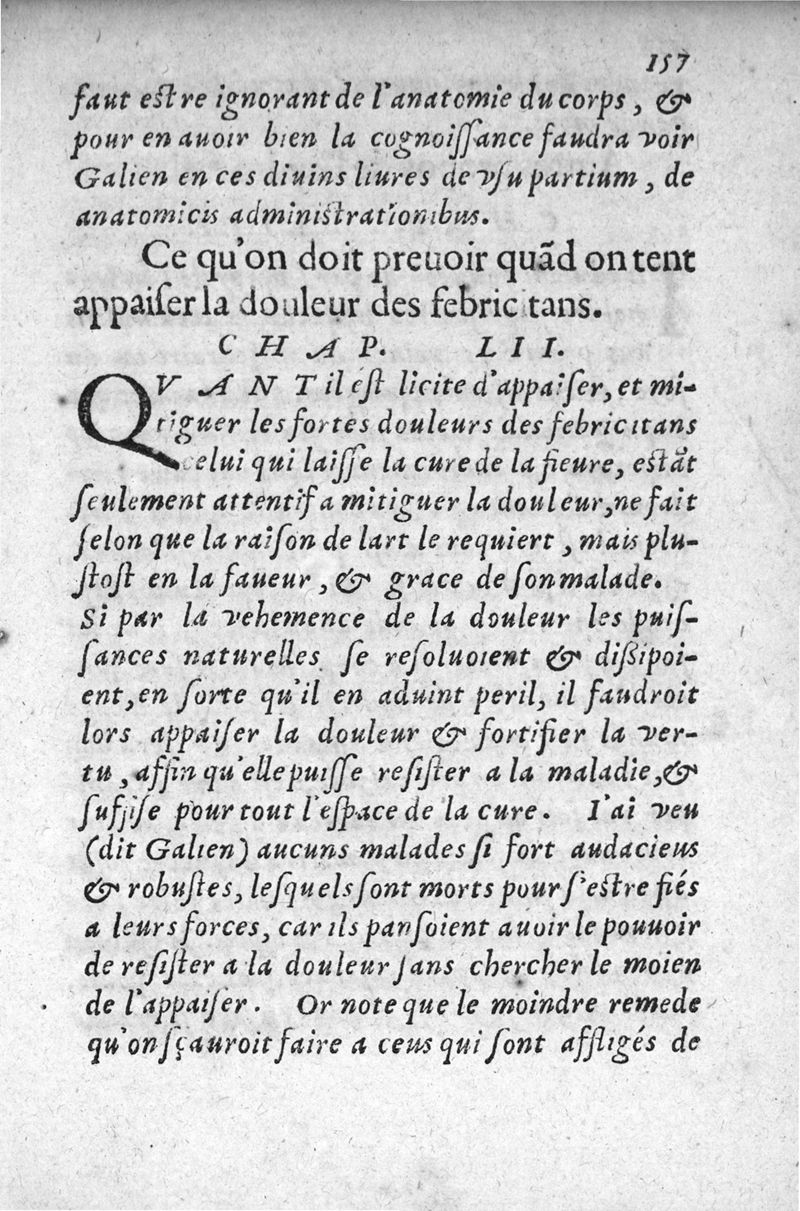 157
faut eſtre ignorant de l'anatomie du corps, &
pour en auoir bien la cognoiſſance faudra voir
Galien en ces diuins liures de vſu partium, de
anatomicis adminiſtrationibus.
Ce qu'on doit preuoir quãd on tent
appaiſer la douleur des febricitans.
CHAP. LII.
QVANT il eſt licite d'appaiſer, et mi-
tiguer les fortes douleurs des febricitans
celui qui laiſſe la cure de la fieure, eſtãt
ſeulement attentif a mitiguer la douleur, ne fait
ſelon que la raiſon de lart le requiert, mais plu-
ſtoſt en la faueur, & grace de ſon malade.
Si par la vehemence de la douleur les puiſ-
ſances naturelles ſe reſoluoient & diſſipoi-
ent, en ſorte qu'il en aduint peril, il faudroit
lors appaiſer la douleur & fortifier la ver-
tu, affin qu'elle puiſſe reſiſter a la maladie, &
ſuffiſe pour tout l'eſpace de la cure. I'ai veu
(dit Galien) aucuns malades ſi fort audacieus
& robuſtes, leſquels ſont morts pour ſ'eſtre fiés
a leurs forces, car ils panſoient auoir le pouuoir
de reſiſter a la douleur ſans chercher le moien
de l'appaiſer. Or note que le moindre remede
qu'on ſçauroit faire a ceus qui ſont affligés de